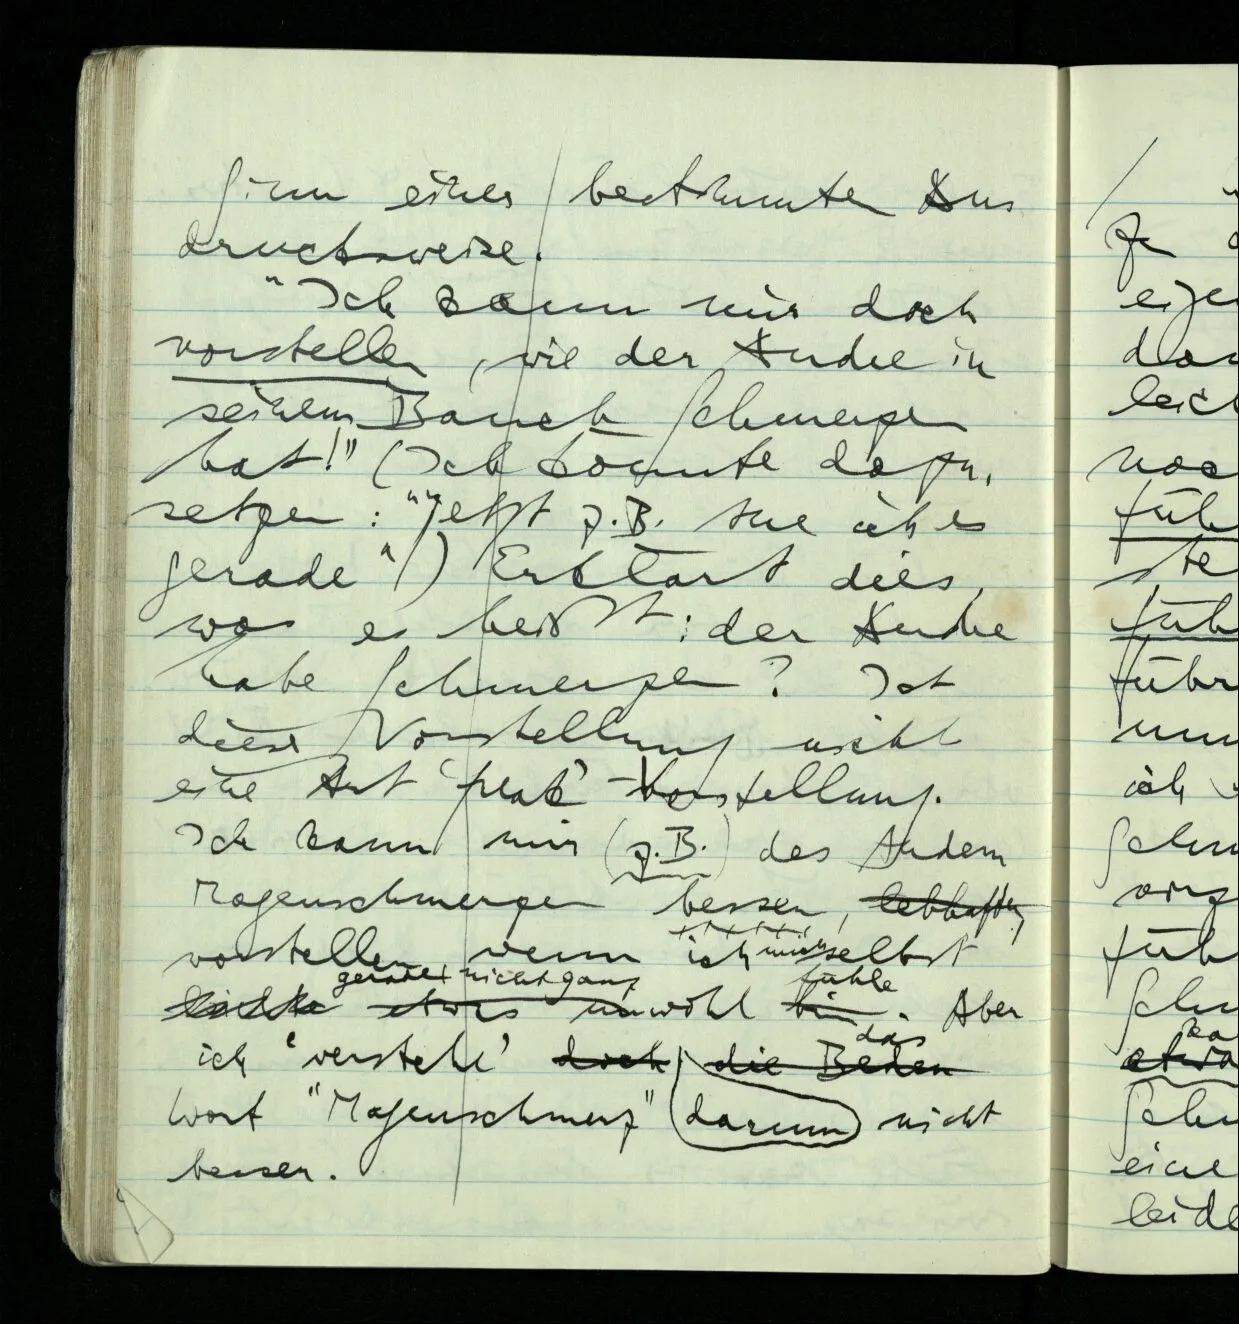 Sinn einer bestimmten Aus
drucksweise.
"Ich kann mir doch
vorstellen, wie der Andre in
seinem Bauch Schmerzen
hat!" (Ich könnte dazu,
setzen: ""Jetzt z.B. tue ich es
gerade") Erklärt dies,
was es heißt: der Andre
habe Schmerzen? Ist
diese Vorstellung nicht
eine Art 'freak' Vorstellung.
Ich kann mir (z.B.) des Andern
Magenschmerzen besser, lebhafter,
vorstellen wenn ich mich selbst
gerade nicht ganz fühle
etwas unwohl bin. Aber
das
ich 'versteh' doch die Bedeu
Wort "Magenschmerz" darum nicht
besser.
zu
leich
füh
ste
füh
führ
ich
füh
eine
leide